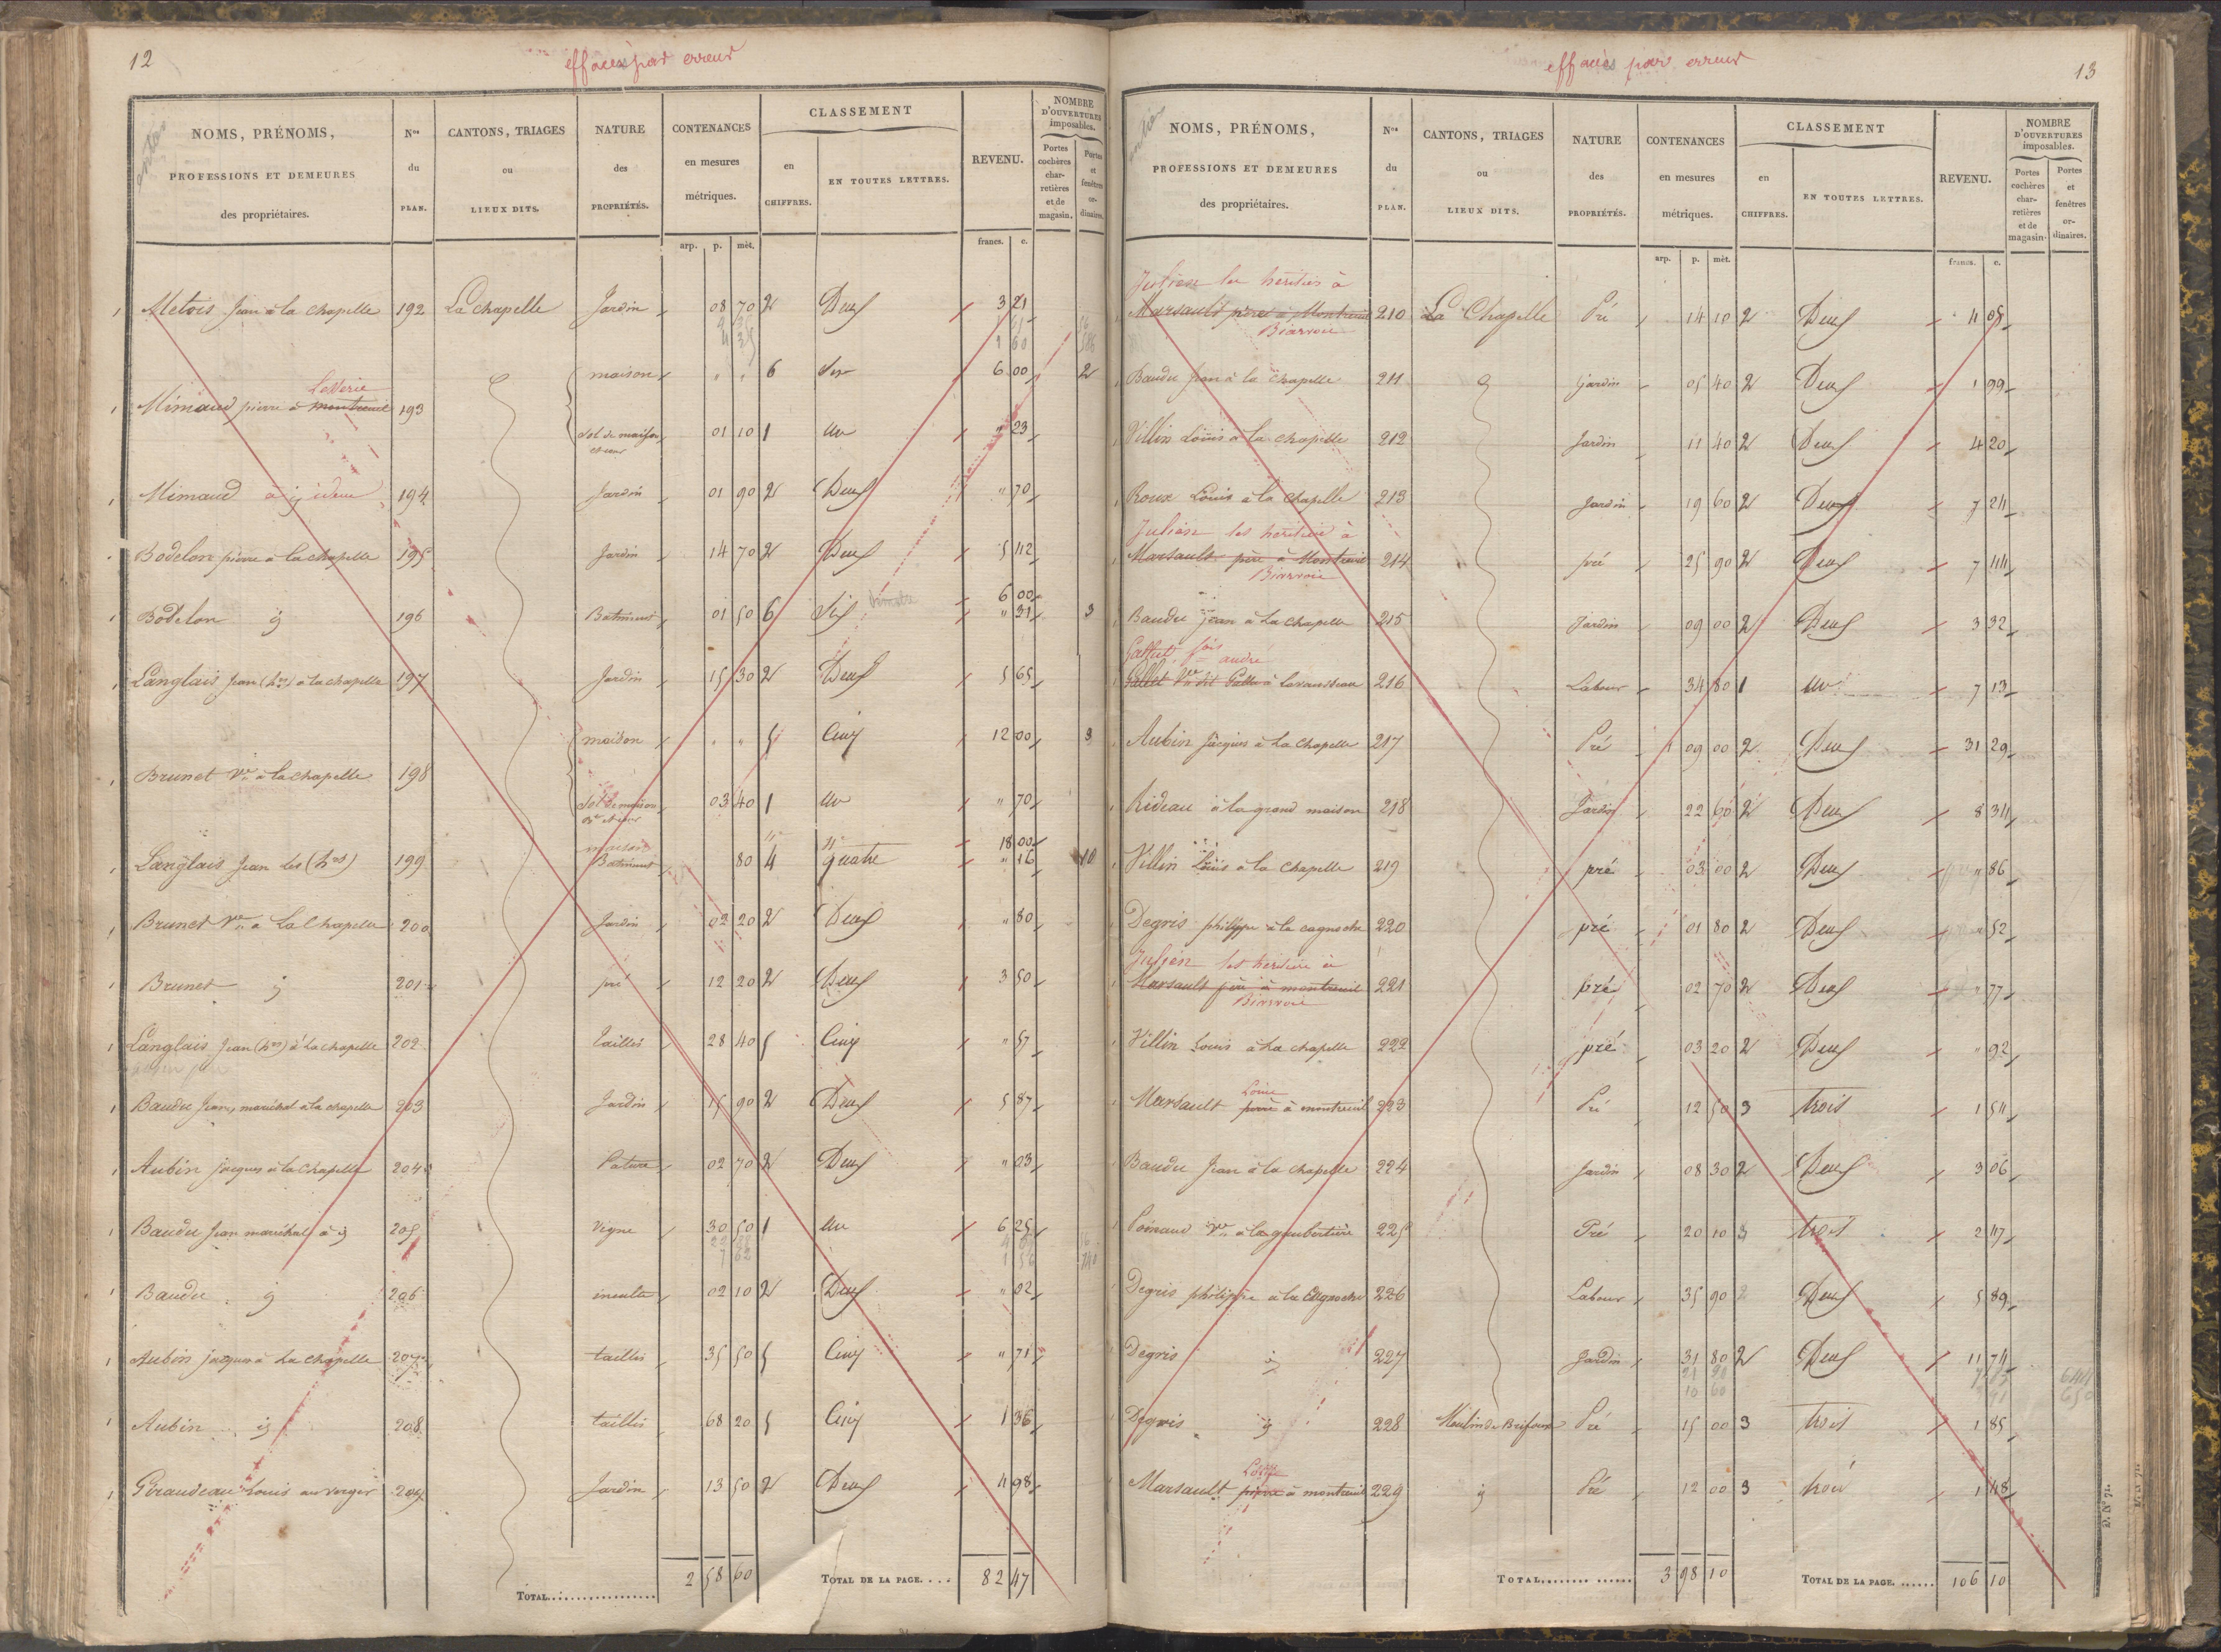 12
effacés par erreur
NOMS, PRÉNOMS, PROFESSIONS ET DEMEURES des propriétaires.
Nos du PLAN.
CANTONS, TRIAGES ou LIEUX DITS.
NATURE des PROPRIÉTÉS.
CONTENANCES en mesures métriques.
CLASSEMENT
en CHIFFRES.
EN TOUTES LETTRES.
REVENU.
NOMBRE D'OUVERTURES imposables.
Portes cochères charretières et de magasin.
Portes et fenêtres ordinaires.
arp. p. mèt. francs. c.
Metois Jean à la Chapelle 192 La Chapelle Jardin 08 70 2 Deux 3 21
maison " " 6 Six 6 00 2
Mimaud pierre à montreuil 193
Sol de maison et cour 01 10 1 Un " 23
Mimaud à idem 194 Jardin 01 90 2 Deux " 70
Bodelon pierre à la Chapelle 195 Jardin 14 70 2 Deux 5 42
6 00
Bodelon id 196 Batiment 01 50 6 Six " 31 3
Langlais Jean (hrs) à la Chapelle 197 Jardin 15 30 2 Deux 5 65
maison " " 5 Cinq 12 00 3
Brunet Ve à la Chapelle 198
Sol de maison et cour 03 40 1 Un " 70
maison 18 00
Langlais Jean les (hrs) 199 Batiment 80 4 quatre " 16 10
Brunet Ve à La Chapelle 200 Jardin 02 20 2 Deux " 80
Brunet id 201 pré 12 20 2 Deux 3 50
Langlais Jean (hrs) à la Chapelle 202 taillis 28 40 5 Cinq " 57
Baudu Jean, maréchal à la chapelle 203 Jardin 15 90 2 Deux 5 87
Aubin jacques à la Chapelle 204 Pature 02 70 2 Deux " 23
Baudu Jean maréchal à id 205 Vigne 30 50 1 Un 6 25
Baudu id 206 inculte 02 10 2 Deux " 02
Aubin jacques à La Chapelle 207 taillis 35 50 5 Cinq " 71
Aubin id 208 taillis 68 20 5 Cinq 1 36
Giraudeau Louis au verger 209 Jardin 13 50 2 Deux 4 98
TOTAL 2 58 60 TOTAL DE LA PAGE 82 47
effacés par erreur
13
NOMS, PRÉNOMS, PROFESSIONS ET DEMEURES des propriétaires.
Nos du PLAN.
CANTONS, TRIAGES ou LIEUX DITS.
NATURE des PROPRIÉTÉS.
CONTENANCES en mesures métriques.
CLASSEMENT
en CHIFFRES.
EN TOUTES LETTRES.
REVENU.
NOMBRE D'OUVERTURES imposables.
Portes cochères charretières et de magasin.
Portes et fenêtres ordinaires.
arp. p. mèt. francs. c.
Julien les héritiers à
Marsault père à Montreuil 210 La Chapelle Pré 14 10 2 Deux 4 05
Biarroie
Baudu Jean à la Chapelle 211 id Jardin 05 40 2 Deux 1 99
Villin Louis à la Chapelle 212 Jardin 11 40 2 Deux 4 20
Roux Louis à la Chapelle 213 Jardin 19 60 2 Deux 7 24
Julien les héritiers à
Marsault père à Montreuil 214 pré 25 90 2 Deux 7 44
Biarroie
Baudu jean à La Chapelle 215 Jardin 09 00 2 Deux 3 32
Gallet Ve dit à Lavausseau 216 Labour 34 80 1 Un 7 13
Aubin Jacques à La Chapelle 217 Pré 1 09 00 2 Deux 31 29
Rideau à la grand maison 218 Jardin 22 60 2 Deux 8 34
Villin Louis à la Chapelle 219 pré 03 00 2 Deux " 86
Degris philippe à la cagnoche 220 pré 01 80 2 Deux " 52
Julien les héritiers à
Marsault père à montreuil 221 pré 02 70 2 Deux " 77
Biarroie
Villin Louis à La chapelle 222 pré 03 20 2 Deux " 92
Louis
Marsault pierre à montreuil 223 Pré 12 50 3 trois 1 54
Baudu Jean à la Chapelle 224 Jardin 08 30 2 Deux 3 06
Poinaud Ve à la gaubertière 225 Pré 20 10 3 trois 2 47
Degris philippe à la Cagnoche 226 Labour 35 90 2 Deux 5 89
Degris id 227 Jardin 31 80 2 Deux 11 74
Degris id 228 Moulin de Pré 15 00 3 trois 1 85
Louis
Marsault pierre à montreuil 229 id Pré 12 00 3 trois 1 48
TOTAL 3 98 10 TOTAL DE LA PAGE 106 10